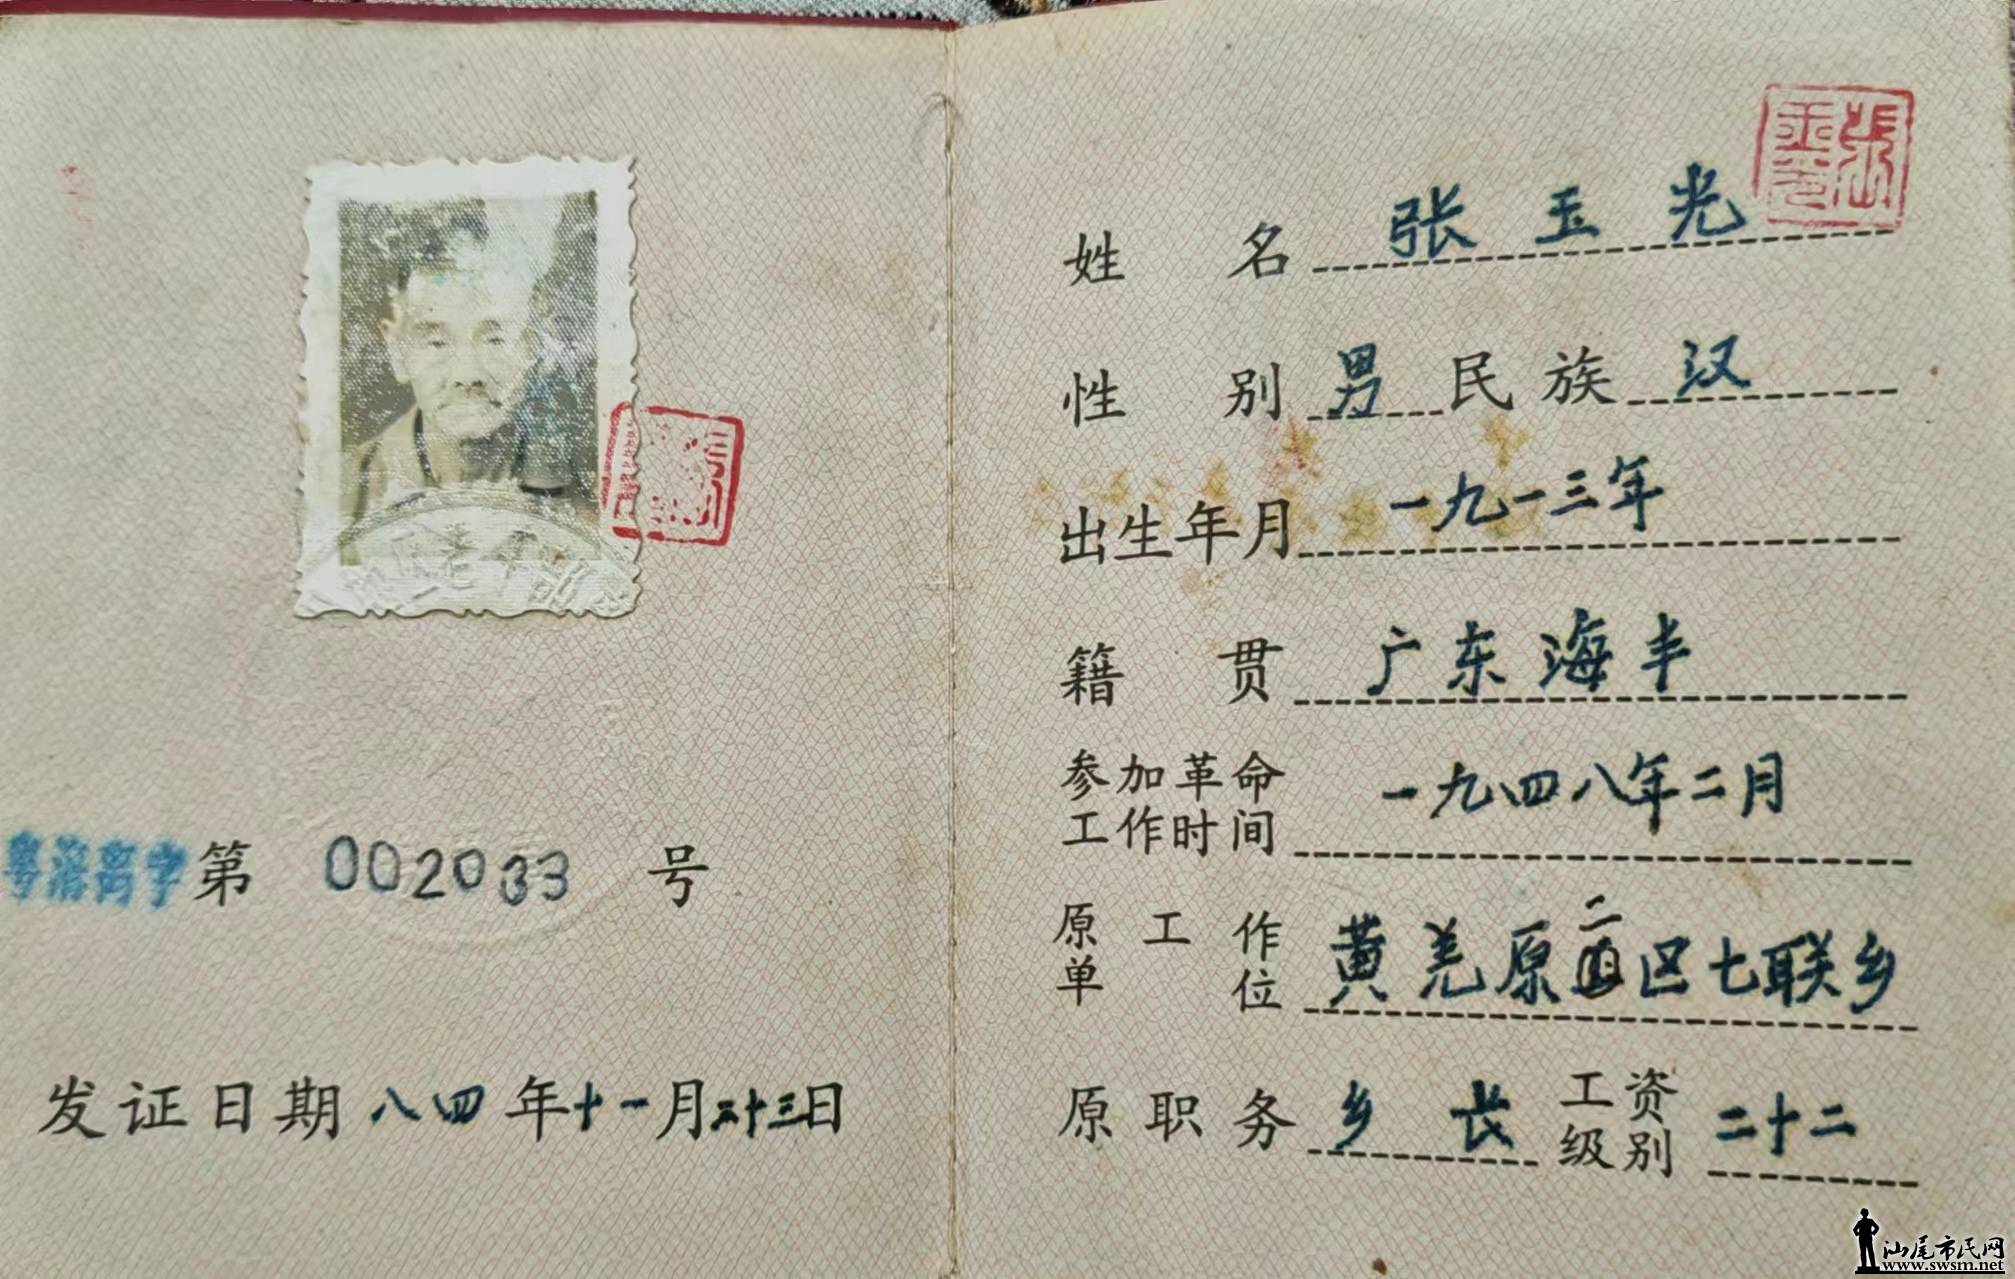 粤海离字第 002033 号
发证日期 八四年十一月二十三日
姓名 张玉光
性别 男 民族 汉
出生年月 一九一三年
籍贯 广东海丰
参加革命
工作时间 一九四八年二月
原工作
单位 黄羌原二区七联乡
原职务 乡长 工资
级别 二十二
汕尾市民网
www.swsm.net